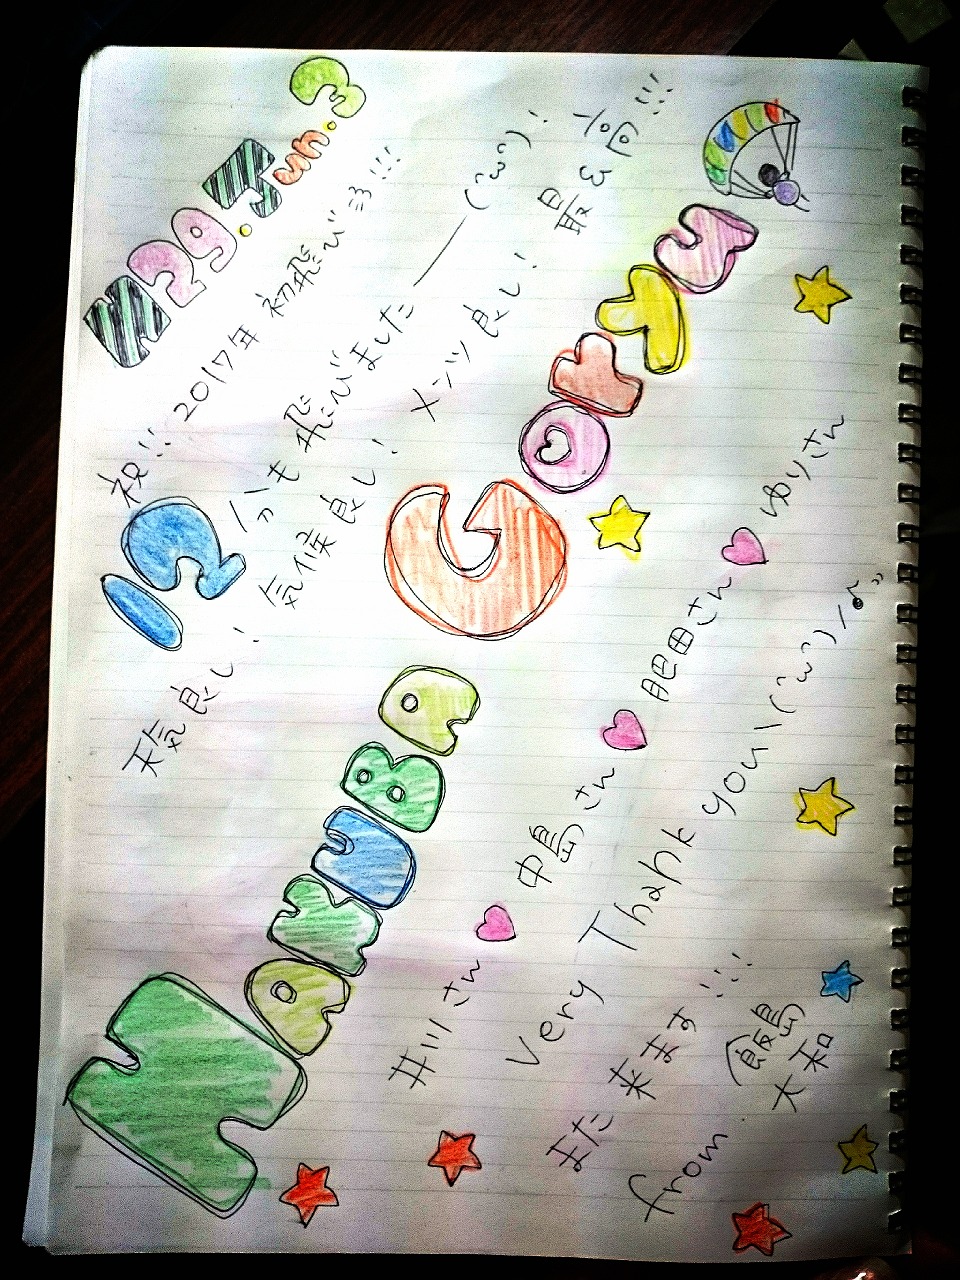 H29.Jun.3
祝!! 2017年 初飛び彡!!!
12分も飛びましたー(^ω^)!
天気良し! 気候良し! メンツ良し! 最&高!!!
HAKUBA GORYU
井川さん♡中島さん♡肥田さん♡ゆりさん
Very Thank you\(^ω^)/♪"
また来ます!!!
(飯島)
from. 大和